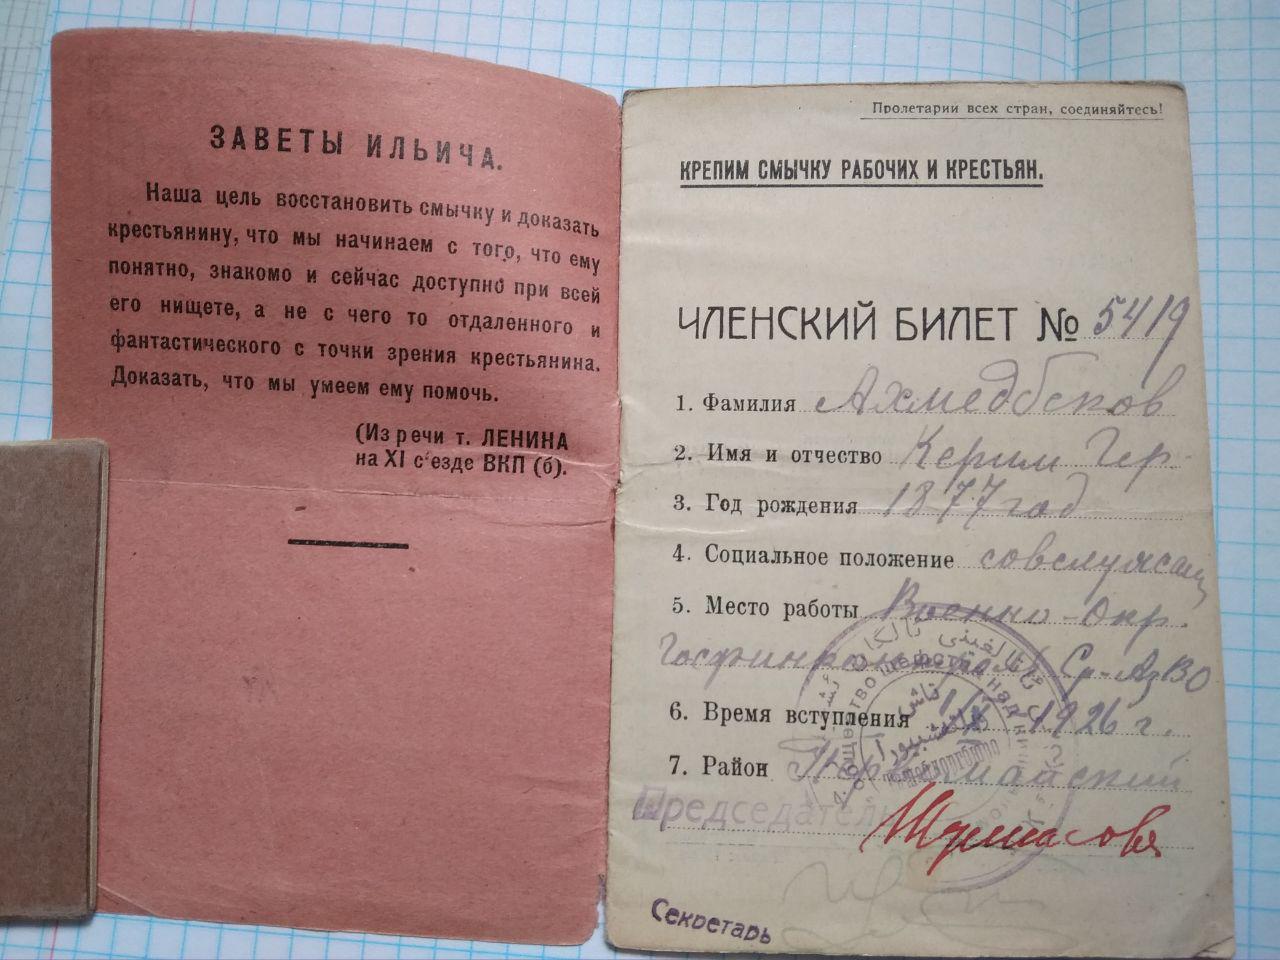 ЗАВЕТЫ ИЛЬИЧА.
Наша цель восстановить смычку и доказать
крестьянину, что мы начинаем с того, что ему
понятно, знакомо и сейчас доступно при всей
его нищете, а не с чего то отдаленного и
фантастического с точки зрения крестьянина.
Доказать, что мы умеем ему помочь.
(Из речи т. ЛЕНИНА
на XI с'езде ВКП (б).
Пролетарии всех стран, соединяйтесь!
КРЕПИМ СМЫЧКУ РАБОЧИХ И КРЕСТЬЯН.
ЧЛЕНСКИЙ БИЛЕТ № 5419
1. Фамилия Ахмедбеков
2. Имя и отчество Керим Гер.
3. Год рождения 1877 год
4. Социальное положение совслужащ
5. Место работы Военно-Окр.
Ср-АзВО
6. Время вступления 1926 г.
7. Район Первомайский
Председатель
Секретарь